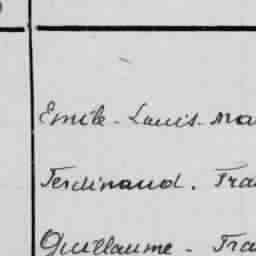 Emile - Louis - Ma
Ferdinand . Fra
Guillaume - Fra